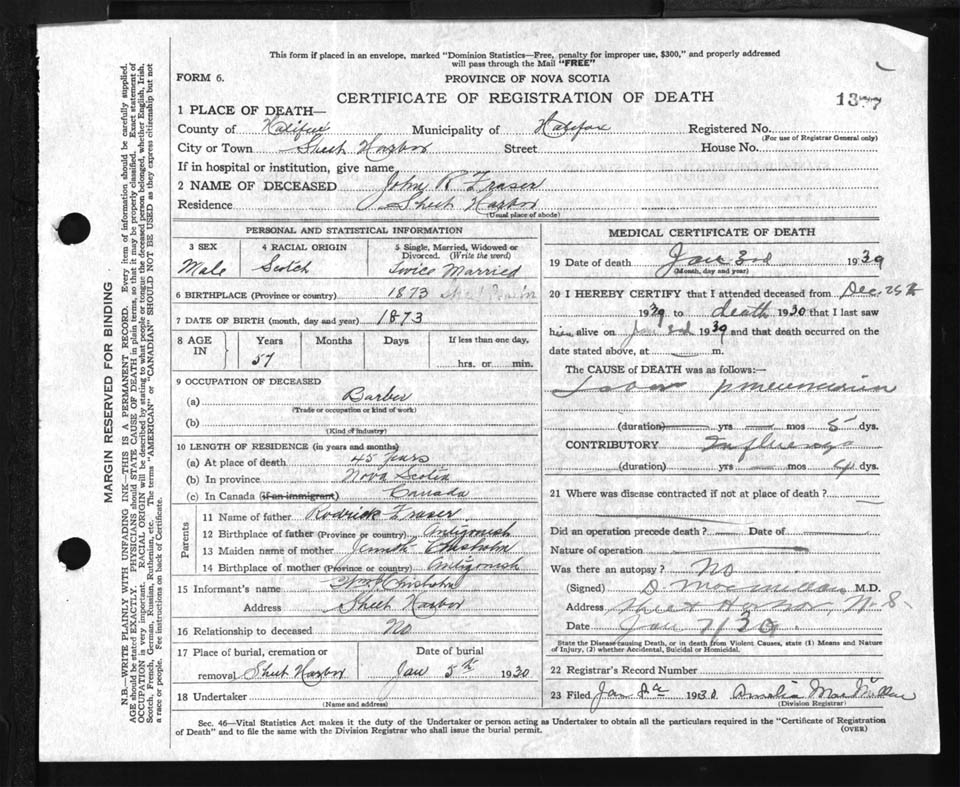 This form if placed in an envelope, marked "Dominion Statistics—Free, penalty for improper use, $300," and properly addressed
will pass through the Mail "FREE"
FORM 6.
PROVINCE OF NOVA SCOTIA
CERTIFICATE OF REGISTRATION OF DEATH
1 PLACE OF DEATH—
County of Halifax Municipality of Halifax Registered No.
(For use of Registrar General only)
City or Town Sheet Harbor Street House No.
If in hospital or institution, give name
2 NAME OF DECEASED John R Fraser
Residence Sheet Harbor
(Usual place of abode)
PERSONAL AND STATISTICAL INFORMATION
3 SEX 4 RACIAL ORIGIN 5 Single, Married, Widowed or
Divorced. (Write the word)
Male Scotch Twice Married
6 BIRTHPLACE (Province or country) 1873
7 DATE OF BIRTH (month, day and year) 1873
8 AGE IN Years Months Days If less than one day,
57 hrs. or min.
9 OCCUPATION OF DECEASED
(a) Barber
(Trade or occupation or kind of work)
(b)
(Kind of industry)
10 LENGTH OF RESIDENCE (in years and months)
(a) At place of death 45 years
(b) In province Nova Scotia
(c) In Canada (if an immigrant) Canada
Parents
11 Name of father Rodrick Fraser
12 Birthplace of father (Province or country) Antigonish
13 Maiden name of mother Chisholm
14 Birthplace of mother (Province or country) Antigonish
15 Informant's name Chisholm
Address Sheet Harbor
16 Relationship to deceased No
17 Place of burial, cremation or Date of burial
removal Sheet Harbor Jan 5th 1930
18 Undertaker
(Name and address)
MEDICAL CERTIFICATE OF DEATH
19 Date of death Jan 3rd 1930
(Month, day and year)
20 I HEREBY CERTIFY that I attended deceased from Dec.
19 to death 1930 that I last saw
him alive on 19 and that death occurred on
date stated above, at m.
The CAUSE of DEATH was as follows:—
pneumonia
(duration) yrs mos 5 dys.
CONTRIBUTORY Influenza
(duration) yrs mos dys.
21 Where was disease contracted if not at place of death?
Did an operation precede death? Date of
Nature of operation
Was there an autopsy? No
(Signed) D MacMillan M.D.
Address Sheet Harbor N.S.
Date Jan 7/30
State the Disease causing Death, or in death from Violent Causes, state (1) Means and Nature
of Injury, (2) whether Accidental, Suicidal or Homicidal.
22 Registrar's Record Number
23 Filed Jan 8th 1930. Amelia MacMillan
(Division Registrar)
Sec. 46—Vital Statistics Act makes it the duty of the Undertaker or person acting as Undertaker to obtain all the particulars required in the "Certificate of Registration
of Death" and to file the same with the Division Registrar who shall issue the burial permit.
(OVER)
MARGIN RESERVED FOR BINDING
N.B.—WRITE PLAINLY WITH UNFADING INK—THIS IS A PERMANENT RECORD. Every item of information should be carefully supplied.
AGE should be stated EXACTLY. PHYSICIANS should STATE CAUSE OF DEATH in plain terms, so that it may be properly classified. Exact statement of
OCCUPATION is very important. RACIAL ORIGIN will be described by stating to what people or tongue the deceased person belonged, whether English, Irish,
Scotch, French, German, Russian, Ruthenian, etc. The terms "AMERICAN" or "CANADIAN" SHOULD NOT BE USED as they express citizenship but not
a race or people. Fee instructions on back of Certificate.